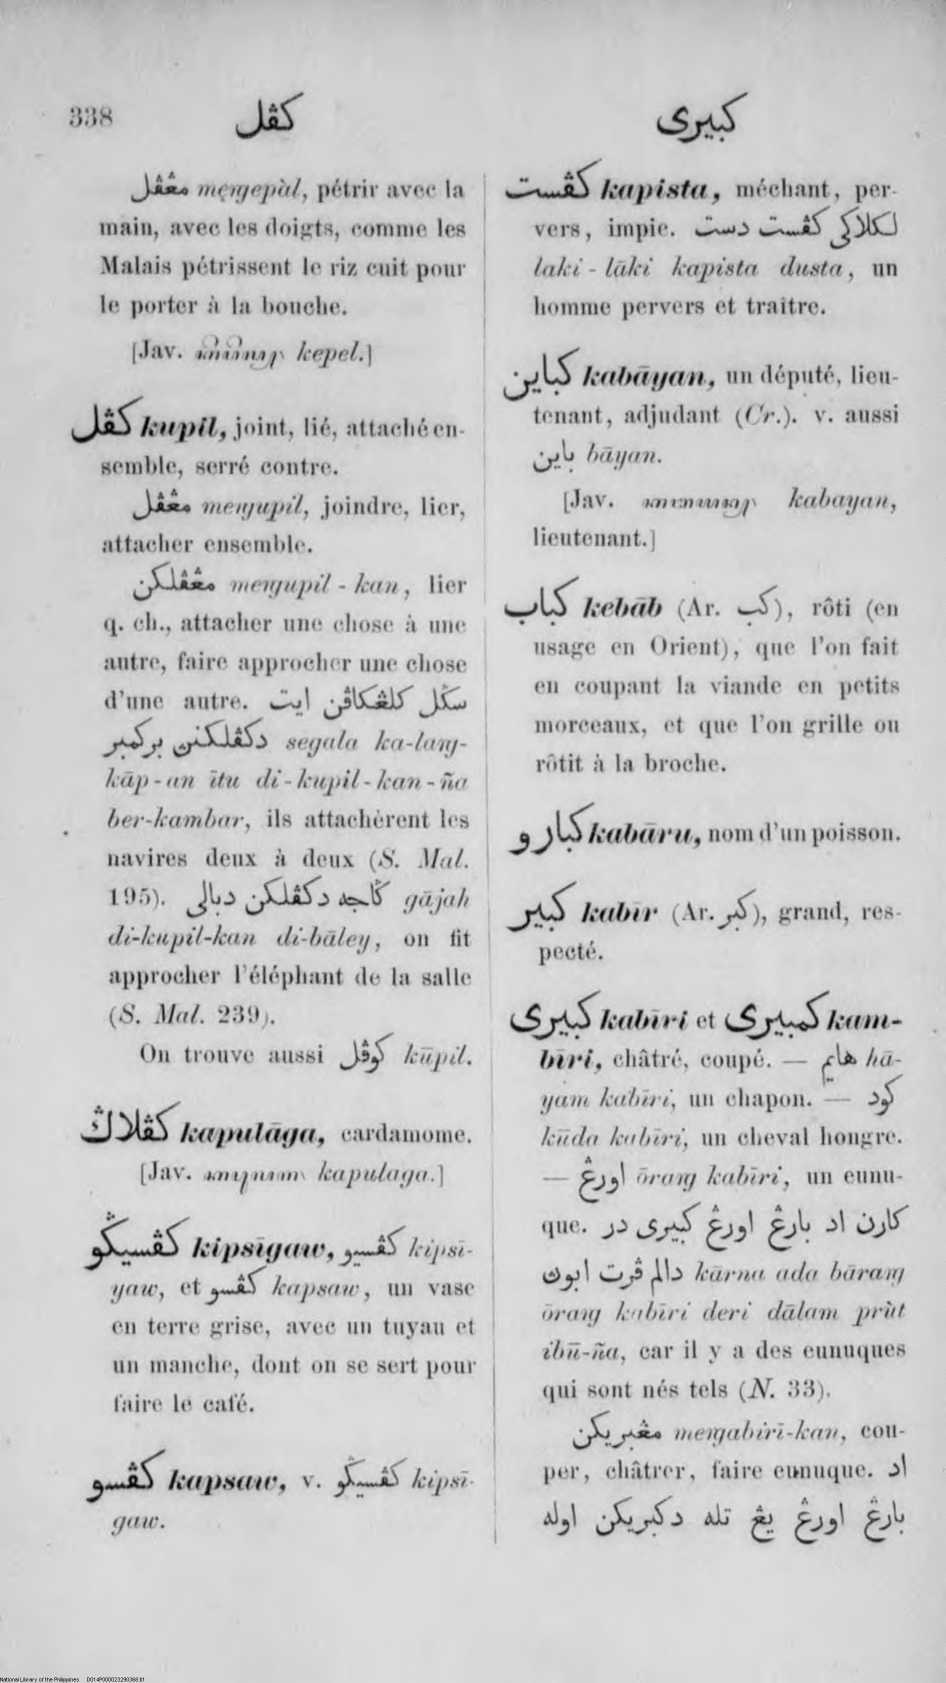 338
كڤل
كبيرى
مڠڤل meṇgepàl, pétrir avec la
main, avec les doigts, comme les
Malais pétrissent le riz cuit pour
le porter à la bouche.
[Jav. kepel.]
كڤل kupil, joint, lié, attaché en-
semble, serré contre.
مڠڤل meṇgupil, joindre, lier,
attacher ensemble.
مڠڤلكن meṇgupil - kan, lier
q. ch., attacher une chose à une
autre, faire approcher une chose
d'une autre. سݢل كلڠكاڤن ايت
دكڤلكنن بركمبر segala ka-laṇg-
kāp - an ītu di - kupil - kan - ña
ber-kambar, ils attachèrent les
navires deux à deux (S. Mal.
195). ݢاجه دكڤلكن دبالى gājah
di-kupil-kan di-bāley, on fit
approcher l'éléphant de la salle
(S. Mal. 239).
On trouve aussi كوڤل kūpil.
كڤلاݢ kapulāga, cardamome.
[Jav. kapulaga.]
كڤسيݢو kipsīgaw, كڤسيو kipsī-
yaw, et كڤسو kapsaw, un vase
en terre grise, avec un tuyau et
un manche, dont on se sert pour
faire le café.
كڤسو kapsaw, v. كڤسيݢو kipsī-
gaw.
كڤست kapista, méchant, per-
vers, impie. لكلاكى كڤست دست
laki - lāki kapista dusta, un
homme pervers et traître.
كباين kabāyan, un député, lieu-
tenant, adjudant (Cr.). v. aussi
باين bāyan.
[Jav. kabayan,
lieutenant.]
كباب kebāb (Ar. كب), rôti (en
usage en Orient), que l'on fait
en coupant la viande en petits
morceaux, et que l'on grille ou
rôtit à la broche.
كبارو kabāru, nom d'un poisson.
كبير kabīr (Ar. كبر), grand, res-
pecté.
كبيرى kabīri et كمبيرى kam-
bīri, châtré, coupé. — هايم hā-
yam kabīri, un chapon. — كود
kūda kabīri, un cheval hongre.
— اورڠ ōraṇg kabīri, un eunu-
que. كارن اد بارڠ اورڠ كبيرى در
دالم ڤرت ابوڽ kārna ada bāraṇg
ōraṇg kabīri deri dālam prùt
ibū-ña, car il y a des eunuques
qui sont nés tels (N. 33).
مڠبريكن meṇgabīrī-kan, cou-
per, châtrer, faire eunuque. اد
بارڠ اورڠ يڠ تله دكبريكن اوله
National Library of the Philippines